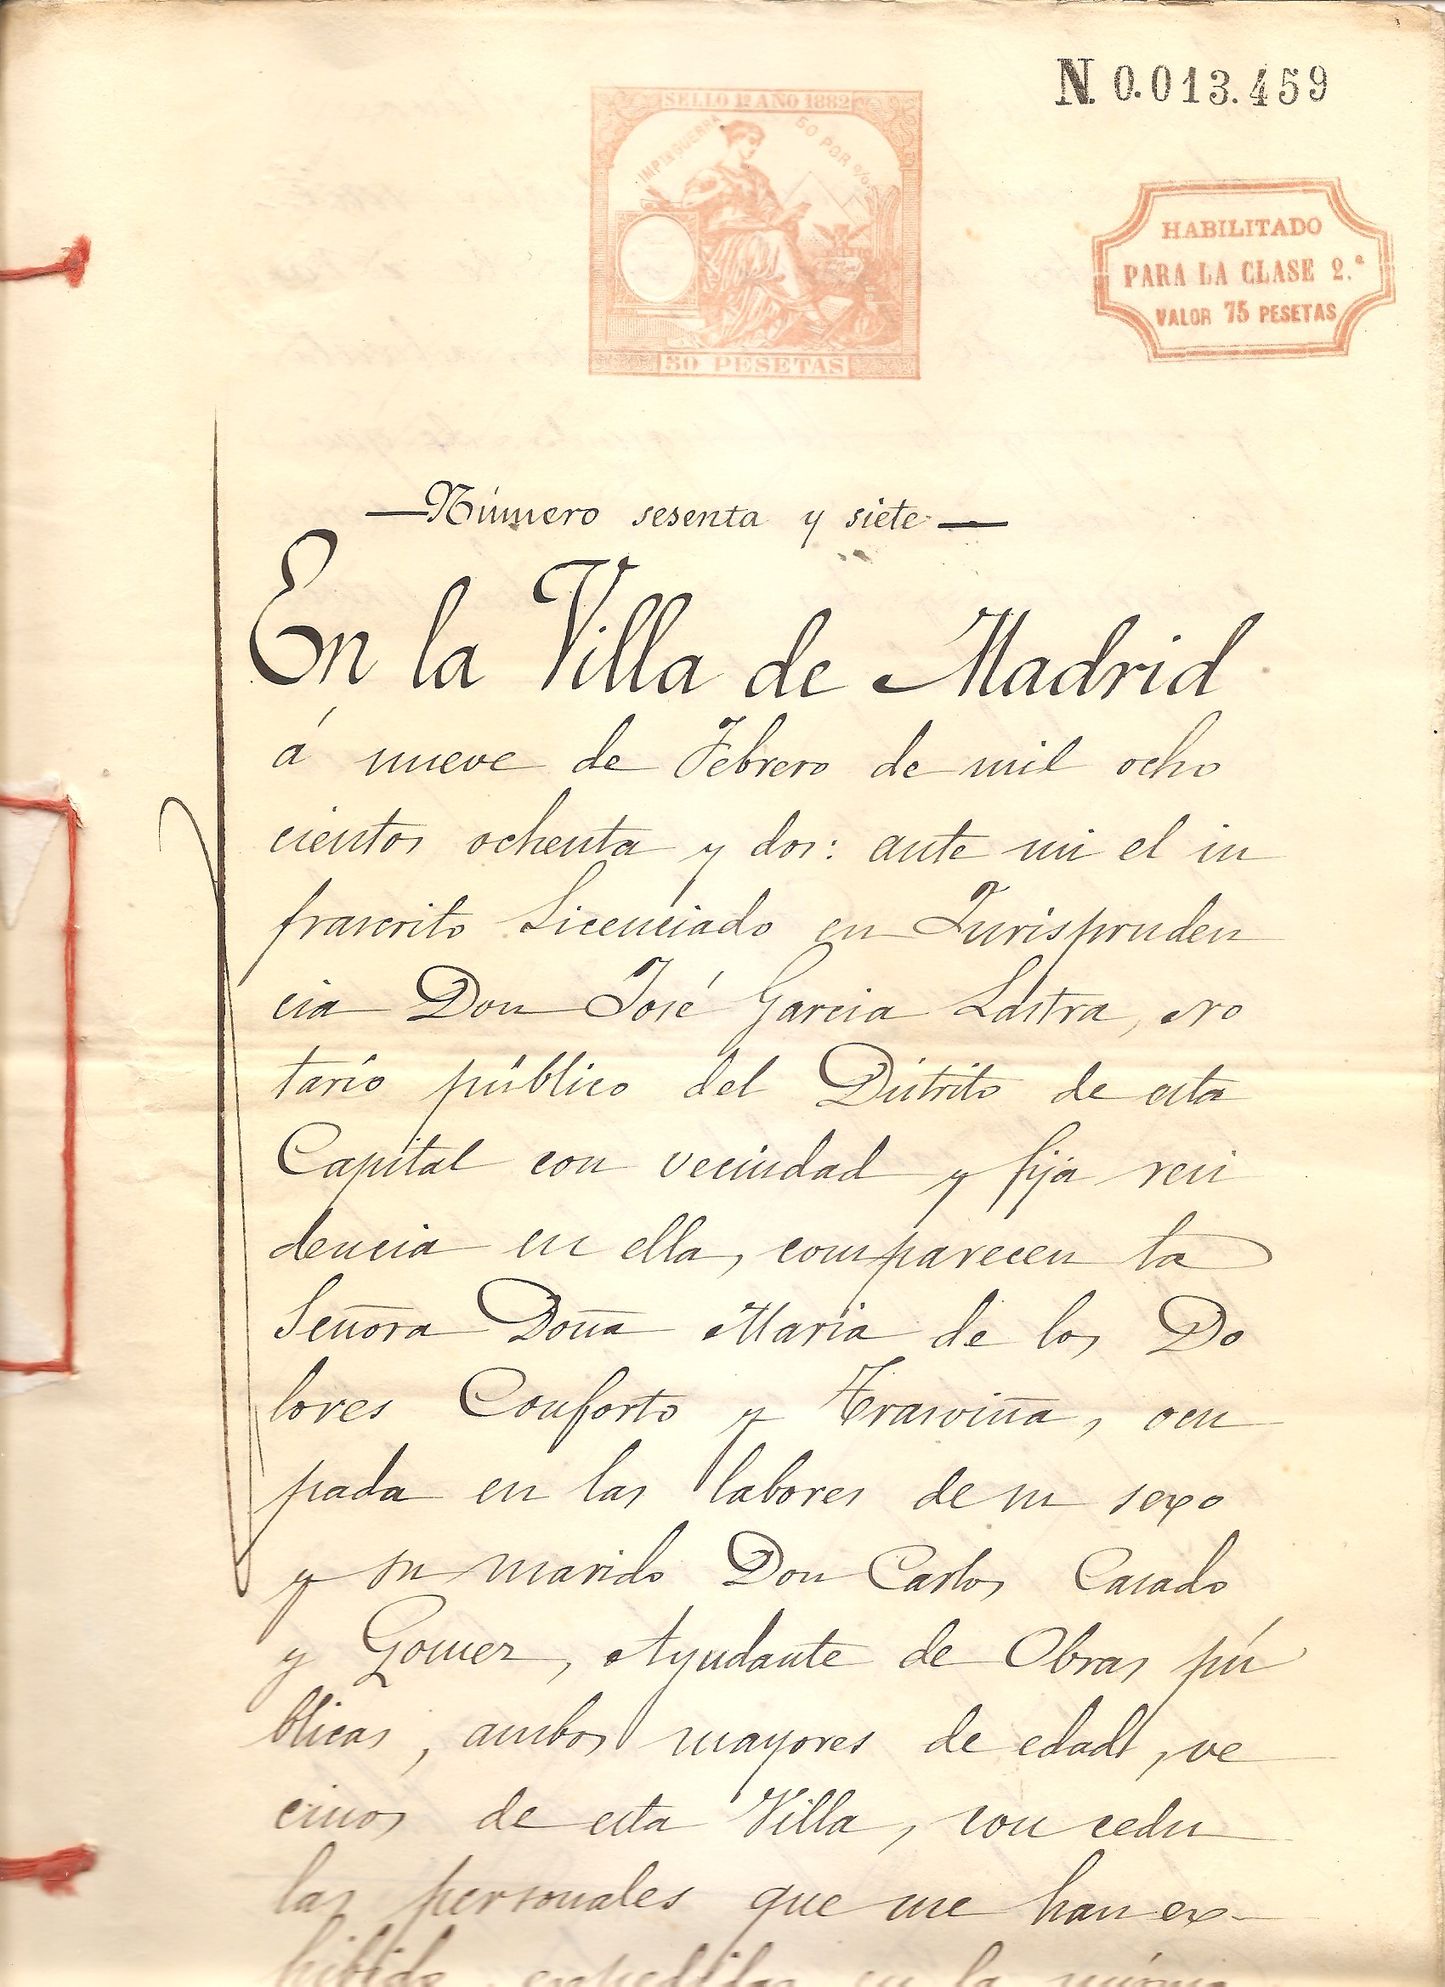 N. 0.013.459
SELLO 1º AÑO 1882
IMPTO GUERRA 50 POR %
50 PESETAS
HABILITADO
PARA LA CLASE 2.ª
VALOR 75 PESETAS
—Número sesenta y siete—
En la Villa de Madrid
á nueve de Febrero de mil ocho
cientos ochenta y dos: ante mi el in
frascrito Licenciado en Jurispruden
cia Don José Garcia Lastra, no
tario público del Distrito de esta
Capital con vecindad y fija resi
dencia en ella, comparecen la
Señora Doña Maria de los Do
lores Conforto y Trasviña, ocu
pada en las labores de su sexo
y su marido Don Carlos Casado
y Gomez, Ayudante de Obras pú
blicas, ambos mayores de edad, ve
cinos de esta Villa, con cedu
las personales que me han ex-
hibido, expedidas en la misma